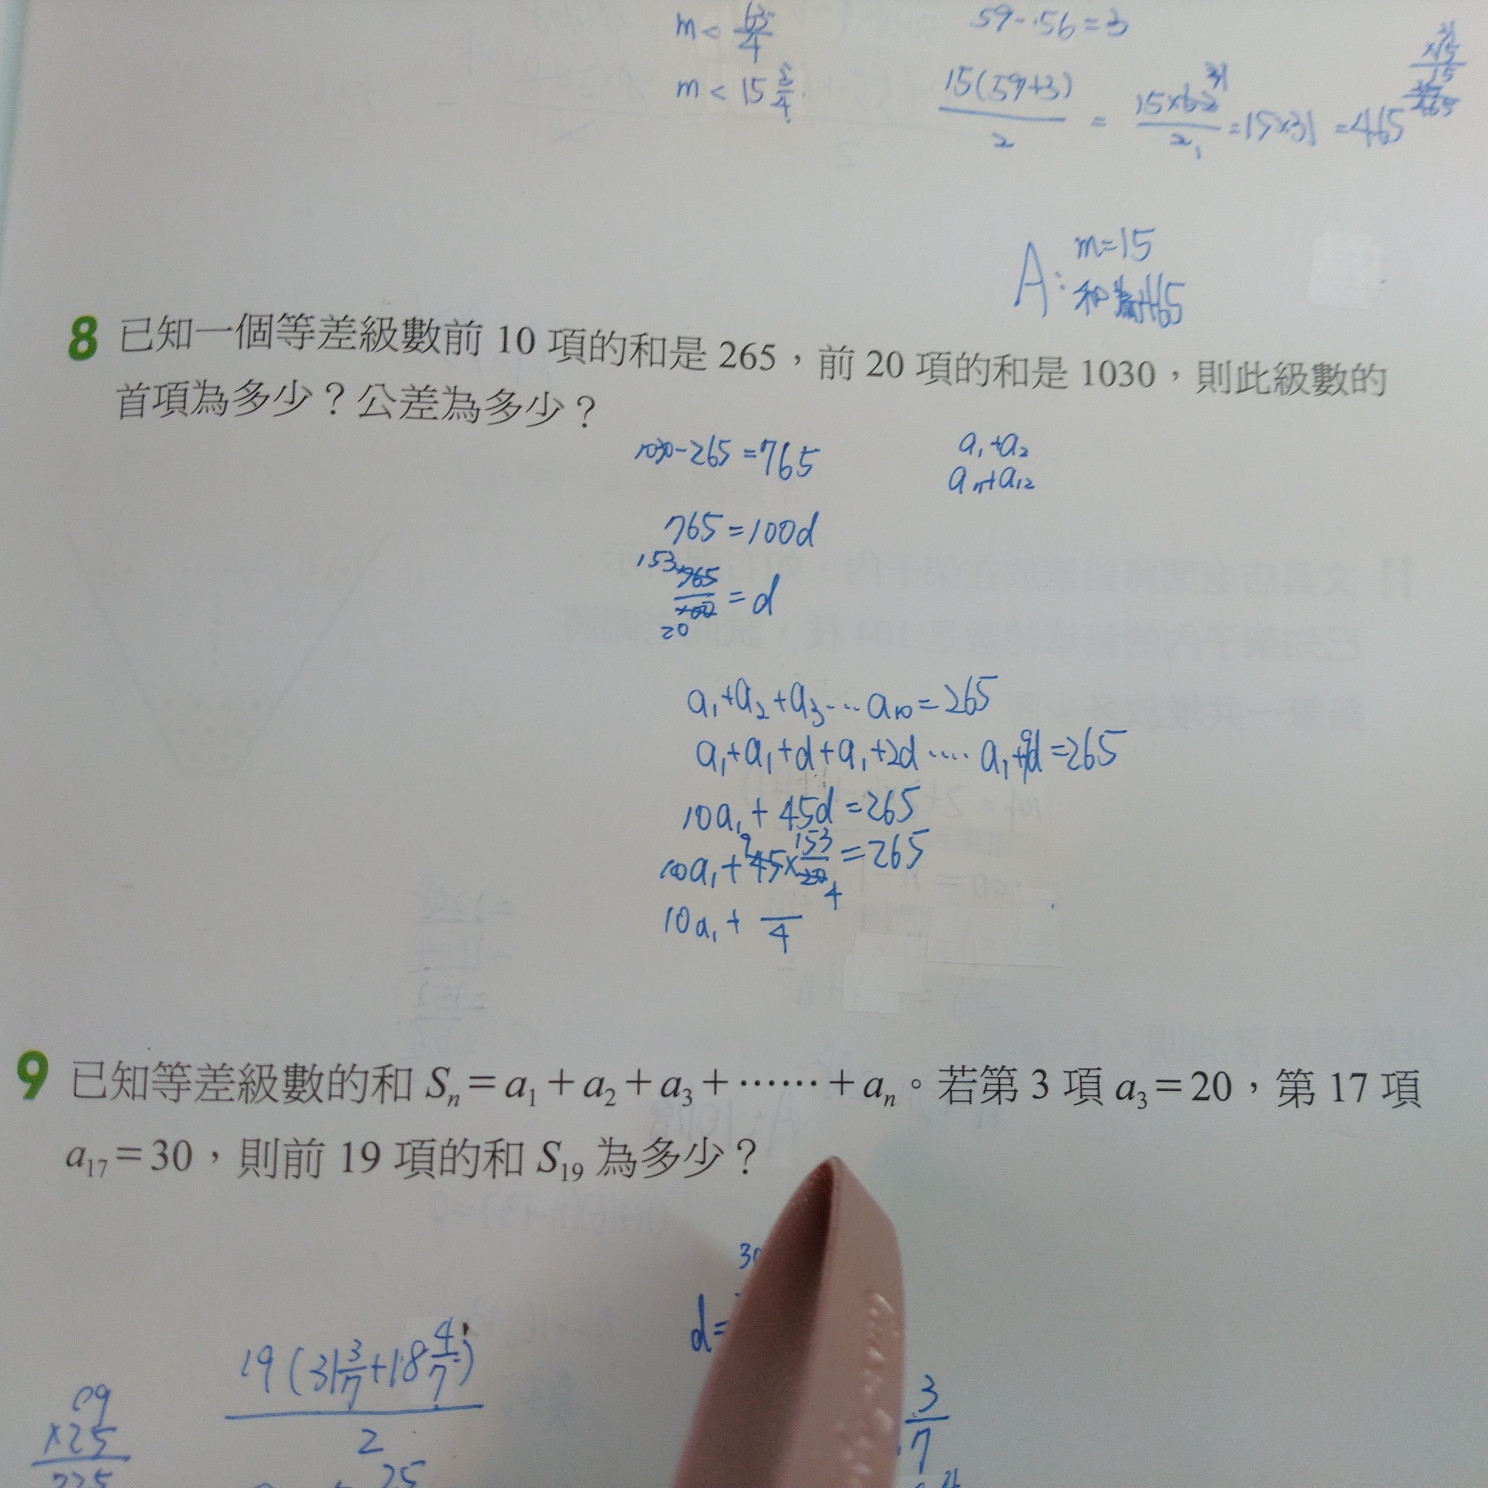 m < 63/4
m < 15 3/4
59-56=3
15(59+3)/2 = 15×62/2 = 15×31 = 465
A: m=15
和為465
8 已知一個等差級數前 10 項的和是 265，前 20 項的和是 1030，則此級數的
首項為多少？公差為多少？
1030-265=765
a₁+a₂
a₁₁+a₁₂
765=100d
153 765/100 20 = d
a₁+a₂+a₃…a₁₀=265
a₁+a₁+d+a₁+2d…. a₁+9d=265
10a₁+45d=265
10a₁+ 9 45×153/20 4 =265
10a₁+ /4
9 已知等差級數的和 Sₙ＝a₁＋a₂＋a₃＋……＋aₙ。若第 3 項 a₃＝20，第 17 項
a₁₇＝30，則前 19 項的和 S₁₉ 為多少？
d=
19(31 3/7+18 4/7)/2
3/7
×25
25